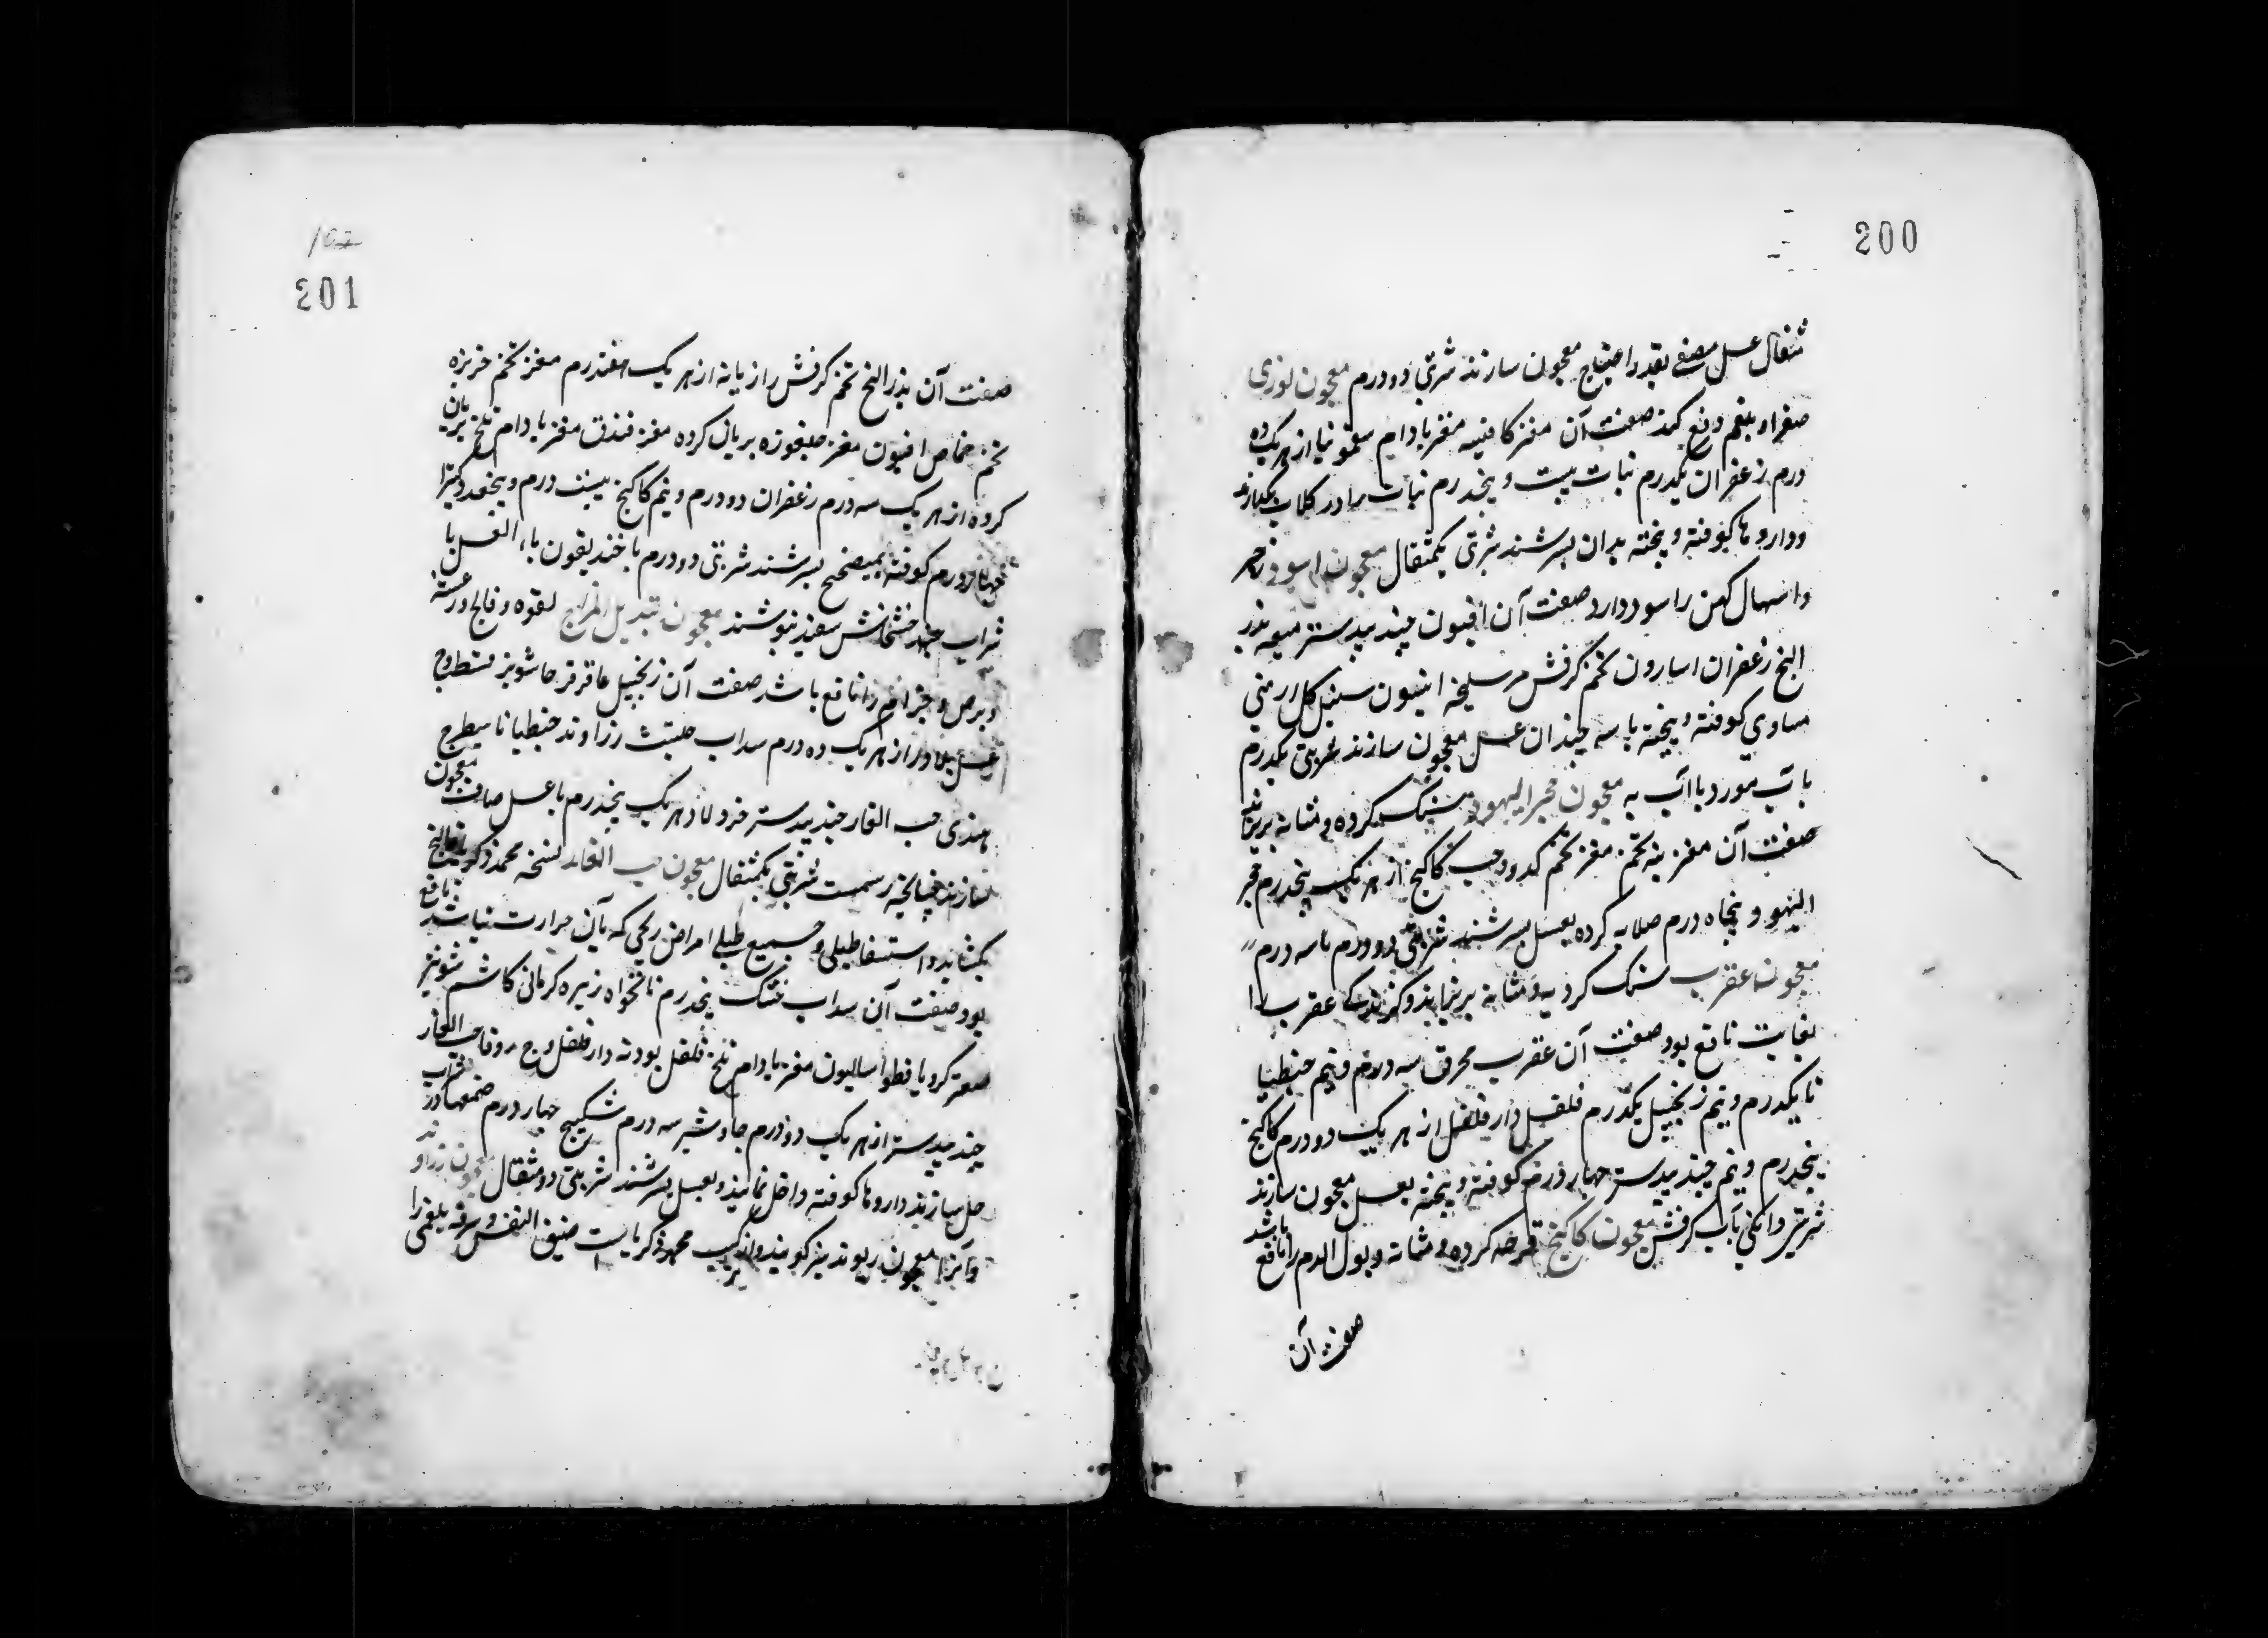 200
مثقال عسل مصفی بقدر احتیاج معجون سازند شربتی دو درم معجون لوزی
صفرا و بلغم دفع کند صفت آن مغز کافیسه مغز بادام سقمونیا از هر یک ده
درم زعفران یکدرم نبات بیست و پنجدرم نبات را در کلاب بکدازند
و داروها کوفته و پخته بدان بسرشند شربتی یکمثقال معجون اسود زحیر
و اسهال کهن را سود دارد صفت آن افیون جندبیدستر میعه بذر
البنج زعفران اسارون تخم کرفش مر سلیخه انیسون سنبل کل ارمنی
مساوی کوفته و پخته با سه چندان عسل معجون سازند شربتی یکدرم
با آب مورد یا آب به معجون حجر الیهود سنک کرده و مثانه بریزاند
صفت آن مغز پنبه تخم مغز تخم کدو و حب کاکنج از هر یک پنجدرم حجر
الیهود پنجاه درم صلایه کرده بعسل بسرشند شربتی دو درم تا سه درم
معجون عقرب سنک کرده و مثانه بریزاند و کزند عقرب را
بغایت نافع بود صفت آن عقرب محرق سه درم و نیم جنطیا
نا یکدرم و نیم زنجبیل یکدرم فلفل دارفلفل از هر یک دو درم کاکنج
پنجدرم و نیم جندبیدستر چهار درم کوفته و پخته بعسل معجون سازند
شربتی دانکی بآب کرفش معجون کاکنج قرحه کرده و مثانه و بول الدم را نافع باشد
صفت آن
201
صفت آن بذر البنج تخم کرفش رازیانه از هر یک هفتدرم مغز تخم خربزه
تخم خماض افیون مغز جلغوزه بریان کرده مغز فندق مغز بادام تلخ بریان
کرده از هر یک سه درم زعفران دو درم و نیم کاکنج بیست درم و پنجعدد کتیرا
درم کوفته بمیفختج بسرشند شربتی دو درم با خندیقون یا
شراب خشخاش سفید بنوشند معجون تبدیل المزاج لقوه و فالج و رعشه
و برص و جذام را نافع باشد صفت آن زنجبیل عاقرقرحا شونیز قسط وج
عسل بلادر از هر یک ده درم سداب حلتیت زراوند جنطیانا شیطرج
هندی حب الغار جندبیدستر خردل از هر یک پنجدرم با عسل صاف معجون
سازند چنانچه رسمست شربتی یکمثقال معجون حب الغار نسخه محمد زکریا
بکشاید و استسقا طبلی و جمیع امراض ریحی که بآن حرارت نباشد نافع
بود صفت آن سداب خشک پنجدرم نانخواه زیره کرمانی کاشم شونیز
صعتر کرویا فطراسالیون مغز بادام تلخ فلفل پودنه دارفلفل وج حب الغار
جندبیدستر از هر یک دو درم جاوشیر سه درم سکبینج چهار درم صمغها در شراب
حل سازند داروها کوفته داخل نمایند و بعسل بسرشند شربتی دو مثقال معجون زراوند
و آنرا معجون ریوند نیز کویند و ترکیب محمد زکریاست ضیق النفس و سرفه بلغمی را